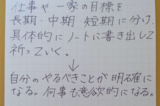 仕事や一家の目標を
長期・中期 短期に分け、
具体的にノートに書き出して
祈っていく。
↓
自分のやるべきことが明確に
なる。何事も意欲的になる。